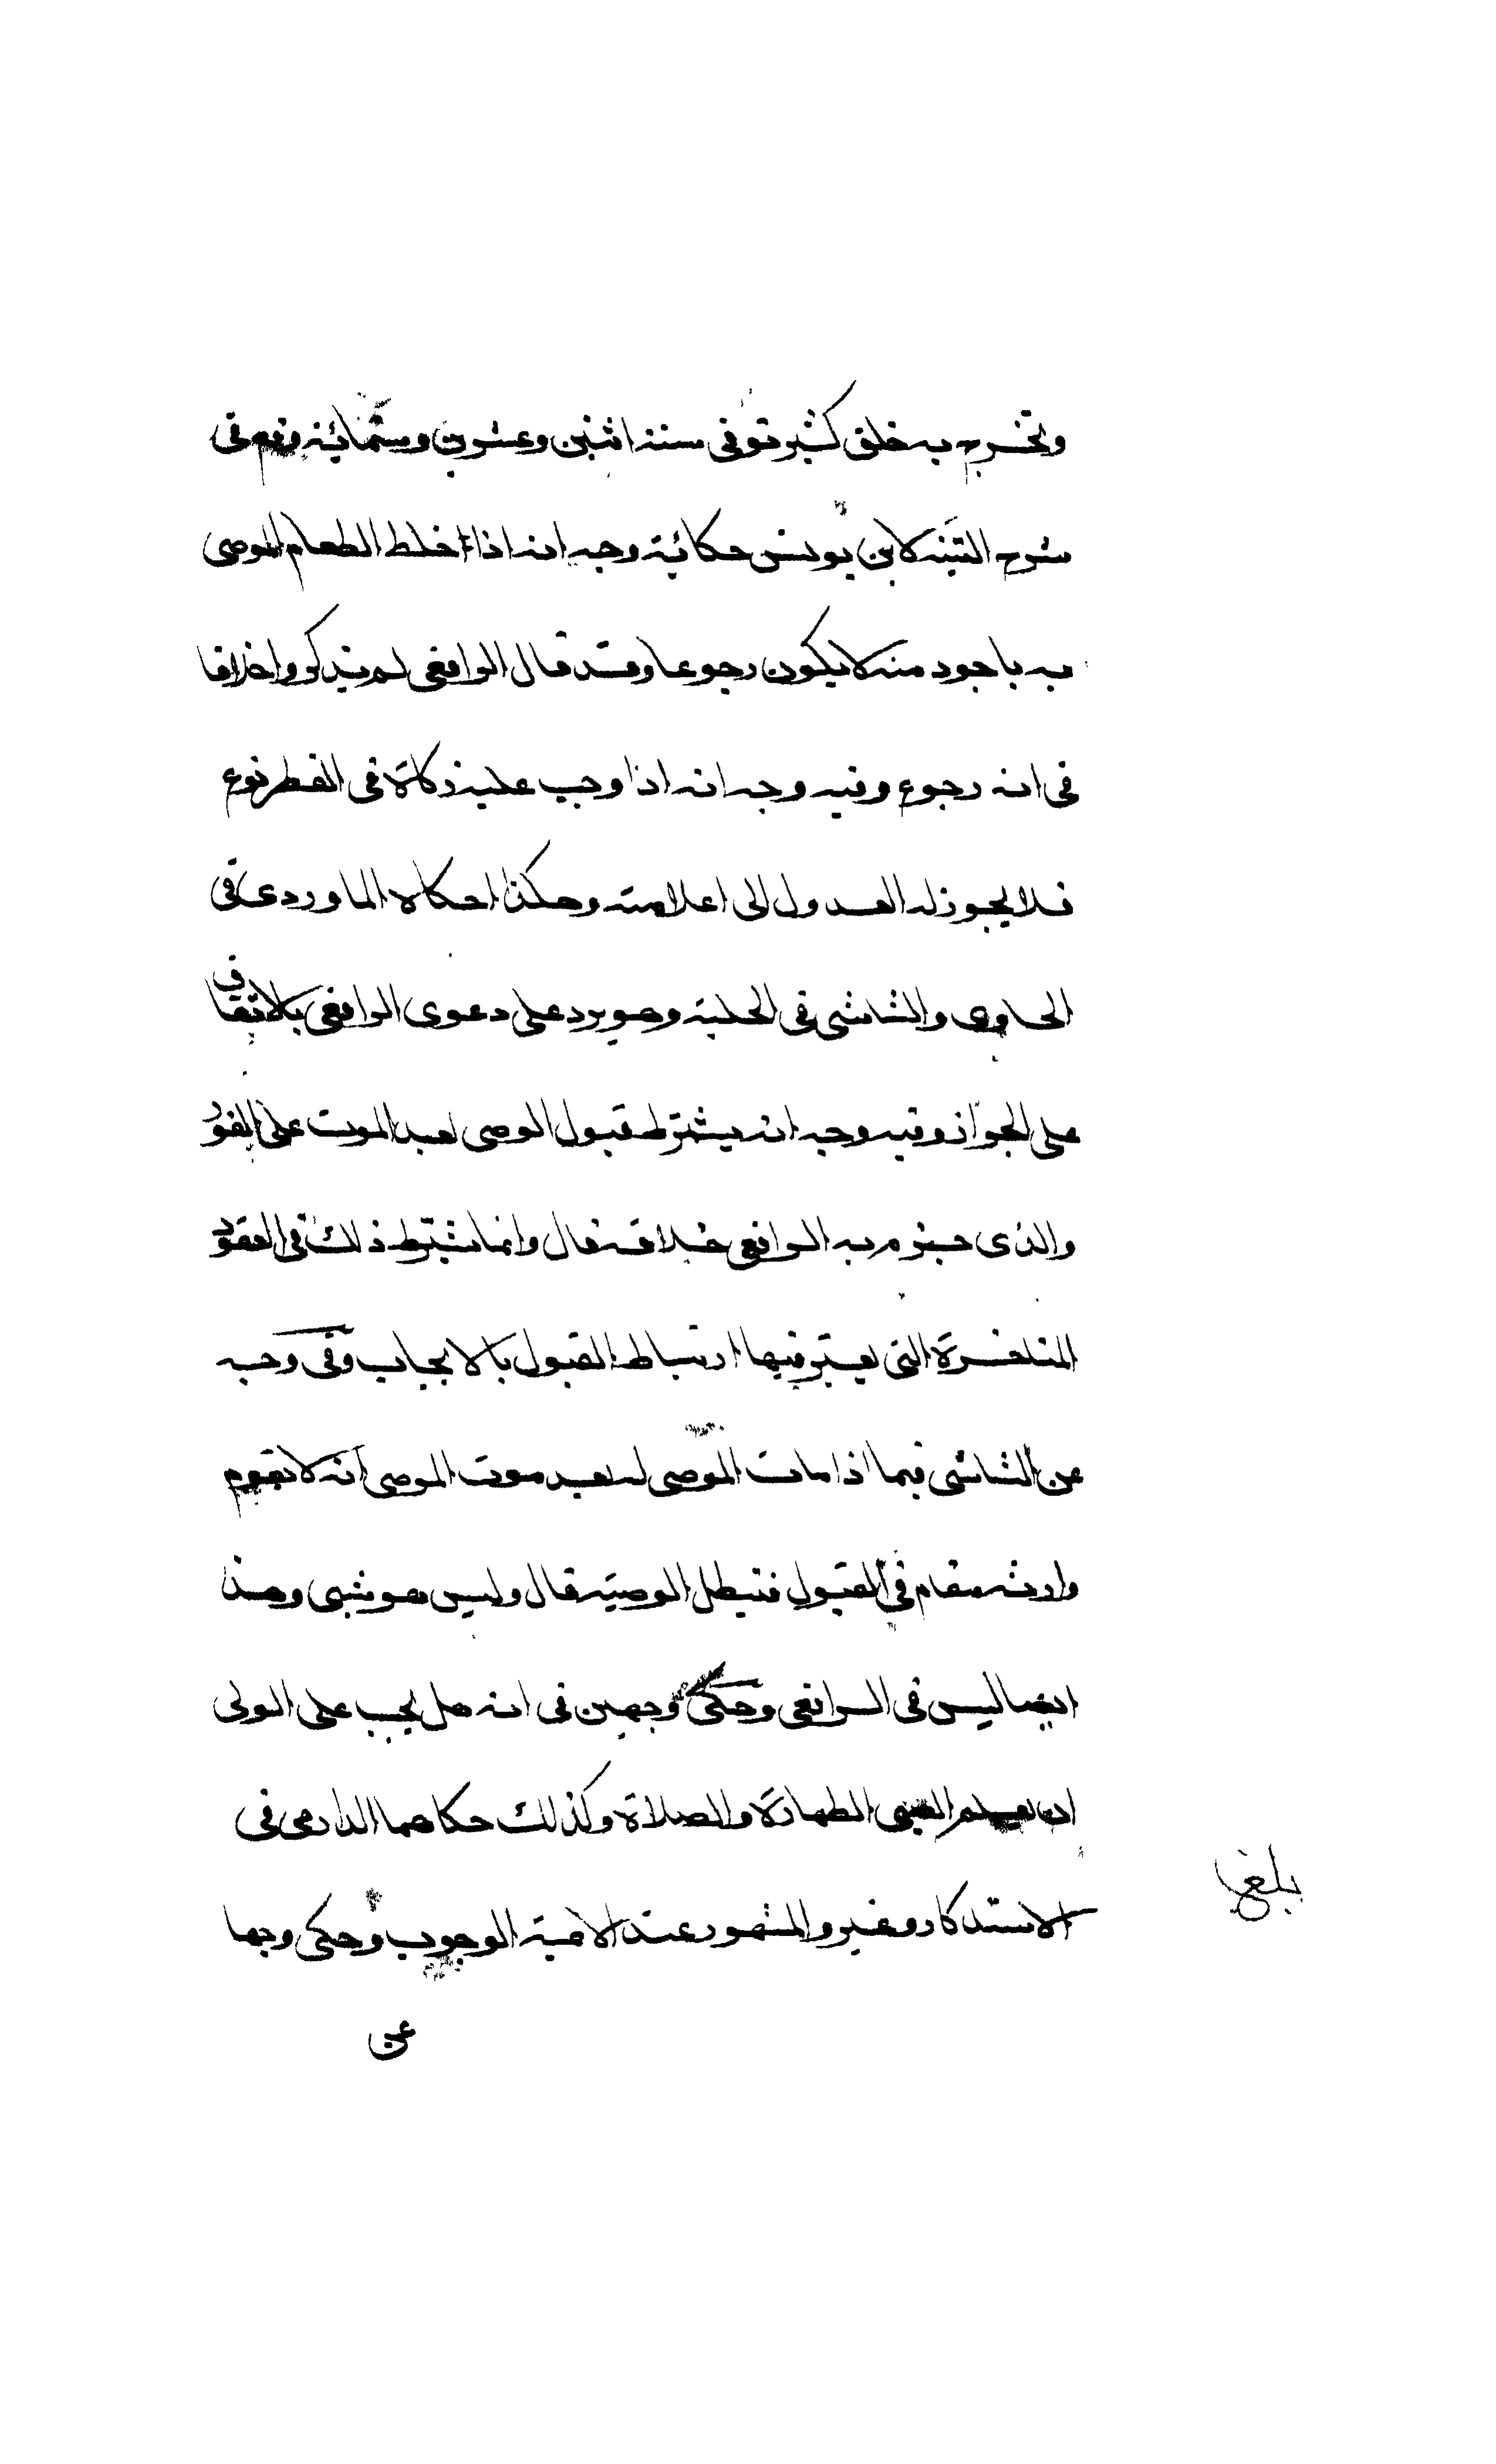 وتخرج به خلق كثير توفى سنة اثنين وعشرين وستمائة وقع في
شرح التنبيه لابن يونس حكاية وجه انه اذا اخلط الطعام الموصى
به باجود منه لا يكون رجوعا وقد قال الرافعي لم يذكروا خلافا
في انه رجوع وفيه وجه انه اذا وجب عليه زكاة في الفطر نوع
فلا يجوز له العدول الى اعلا منه وهكذا حكاه الماوردى في
الحاوى والشاشى في الحلية وهو يرد على دعوى الرافعي بالاتفاق
على الجواز وفيه وجه انه يشترط قبول الوصى بعد الموت على الفور
والذى جزم به الرافعي خلافه فقال وانما يشترط ذلك في العقود
المتاخرة التى يعتبر فيها ارتباط القبول بالايجاب وفى وجه
عن الشاشى فيما اذا مات الموصى له بعد موت الموصى انه لا يقوم
وارثه مقامه في القبول فتبطل الوصية قال وليس هو بشى وهذا
ايضا ليس في الرافعي وحكى وجهين في انه هل يجب على الولى
ان يعلم الصبى الطهارة والصلاة وكذلك حكاهما الدارمى في
الاستدكار وغيره والمشهور عند الامية الوجوب وحكى وجها
بلغ
عن